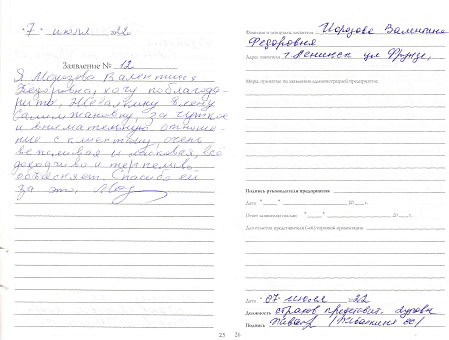 "7" июля 2022
Заявление № 12
Я Морозова Валентина
Фёдоровна, хочу поблагода-
рить, Жевалкину Елену
за чуткое
и внимательную отноше-
ние с клиентом, очень
вежливая и ласковая, всё
доходчиво и терпеливо
объясняет. Спасибо ей
за это. Моз
25
Фамилия и инициалы заявителя Морозова Валентина
Федоровна
Адрес заявителя г. Ленинск ул Фрунзе,
Меры, принятые по заявлению администрацией предприятия:
Подпись руководителя предприятия
Дата " " 20 г.
Ответ заявителю выслан " " 20 г.
Для отметок представителя (-ей) торговой организации
Дата "07" июля 2022
Должность страхов представит.
Подпись
26